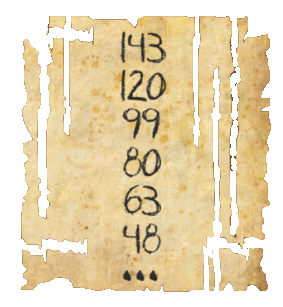 143
120
99
80
63
48
...